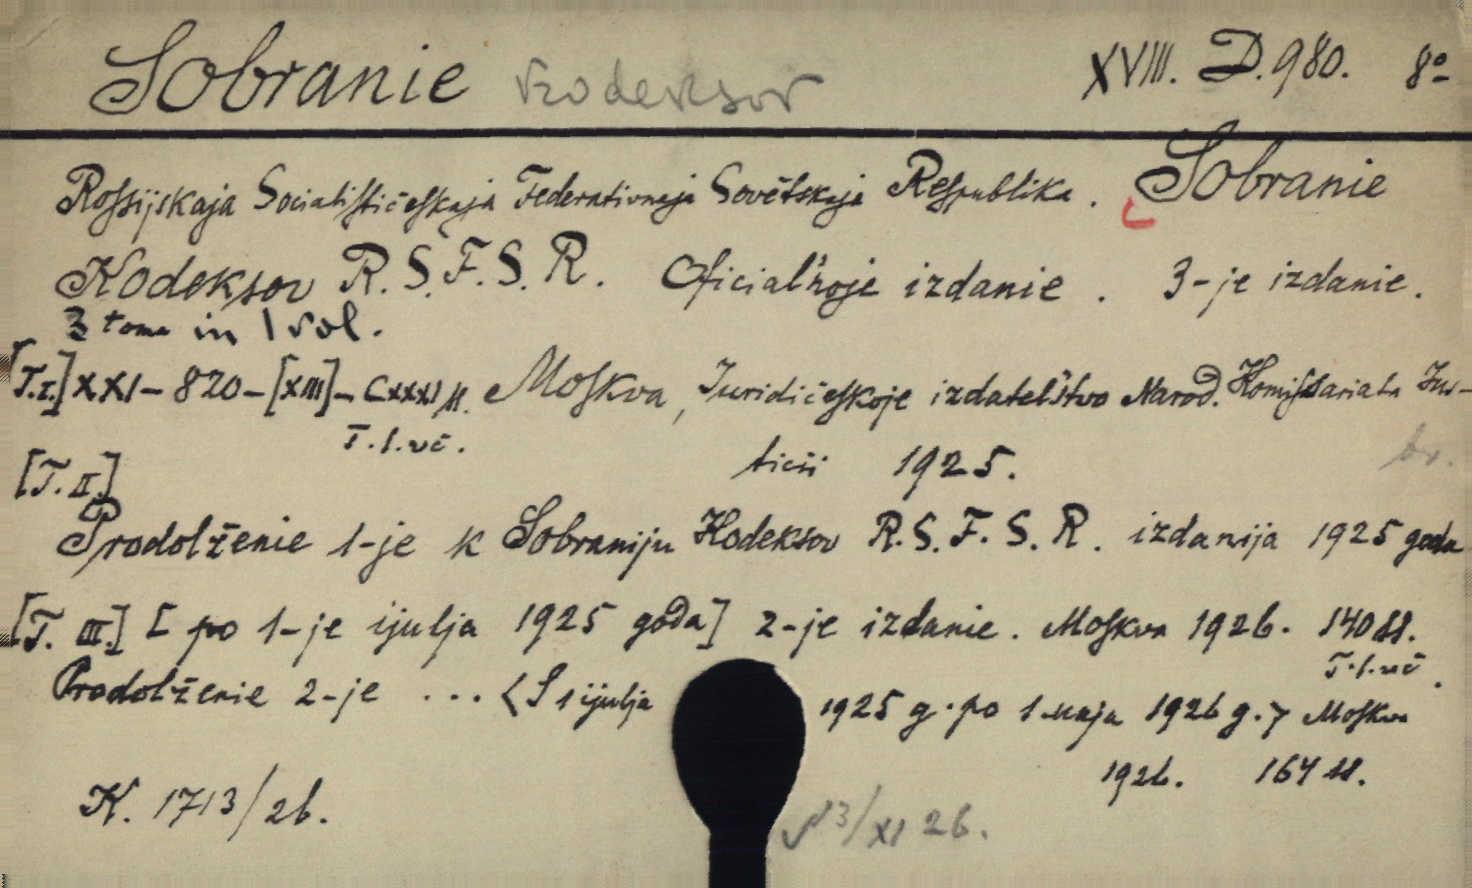 Sobranie kodeksov XVIII. D. 980. 8º
Rossijskaja Socialističeskaja Federativnaja Sovětskaja Respublika. Sobranie
Kodeksov R.S.F.S.R. Oficial'noje izdanie. 3-je izdanie.
3 tomy in 1 vol.
[T.I.] XXI-820-[XIII]-CXXXI ss. Moskva, Juridičeskoje izdatel'stvo Narod. Komissariata Jus-
T.l.uč. ticii 1925. br.
[T. II.]
Prodolženie 1-je k Sobraniju Kodeksov R.S.F.S.R. izdanija 1925 goda
[T. III.] [po 1-je ijulja 1925 goda] 2-je izdanie. Moskva 1926. 140 ss.
T.l.uč.
Prodolženie 2-je ... <S 1 ijulja 1925 g. po 1 maja 1926 g.> Moskva
1926. 164 ss.
K. 1713/26.
13/XI 26.